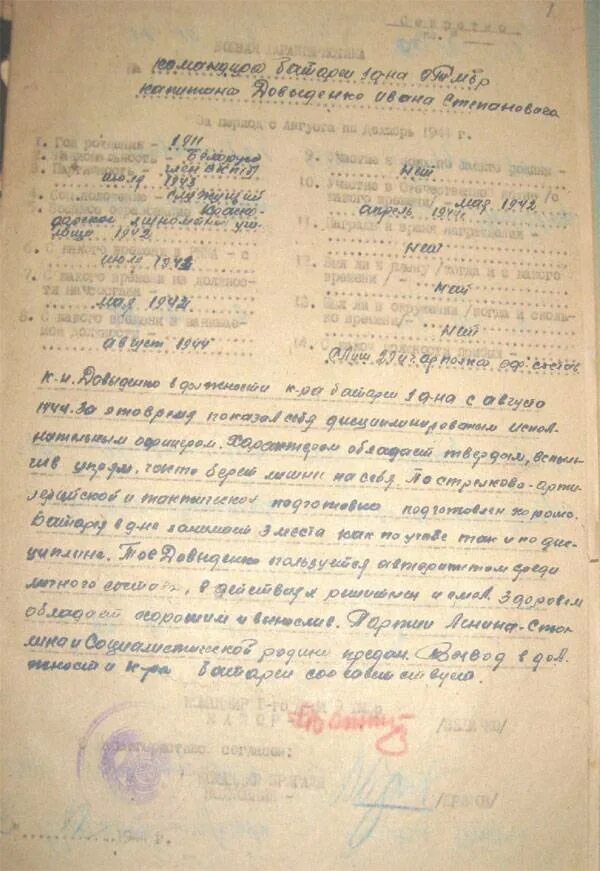 1
Секретно
БОЕВАЯ ХАРАКТЕРИСТИКА
на командира батареи 1 д-на
капитана Довыденко Ивана Степановича
За период с Августа по Декабрь 1944 г.
1. Год рождения - 1911
2. Национальность - Белорус
3. Партийность - член ВКП/б/
июля 1943
4. Соц.положение - служащий
Красно-
дарское миномётное учи-
лище 1942
6. С какого времени в РККА - с
июля 1942
7. С какого времени на должнос-
ти начсостава -
мая 1942
8. С какого времени в занимае-
мой должности -
август 1944
9. Участие в
нет
10. Участие в Отечественной войне /с
какого времени/ - май 1942
апрель 1944
11. Награды и время награждения -
нет
12. Был ли в плену /когда и с какого
времени/ -
нет
13. Был ли в окружении /когда и сколь-
ко времени/ -
нет
14. С какой должности прибыл -
полка оф. состава
к-н. Довыденко в должности к-ра батареи 1 д-на с августа
1944. За это время показал себя дисциплинированым испол-
нительным офицером. Характером обладает твердым, вспыль-
чив упрям, часто берет лишнее на себя. По стрелково-арти-
лерийской и тактической подготовке подготовлен хорошо.
Батарея в д-не занимает 3 место как по учебе так и по дис-
циплине. Тов Довыденко пользуется авторитетом среди
личного состава, в действиях решителен и смел. Здоровьем
обладает хорошим и вынослив. Партии Ленина-Ста-
лина и Социалистической родине предан. Вывод в дол-
жности к-ра батареи соответствует.
КОМАНДИР 1-го
МАЙОР -
С характеристикой согласен:
КОМАНДИР БРИГАДЫ
ПОЛКОВНИК -
194 г.